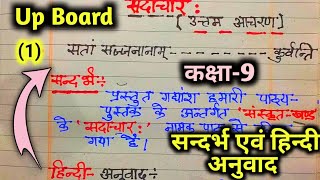 Up Board
सदाचार :
(उत्तम आचरण)
(1)
सतां सज्जनानाम् ---------- कुर्वन्ति
कक्षा-9
सन्दर्भ:-
प्रस्तुत गद्यांश हमारी पाठ्य-
पुस्तक के अन्तर्गत 'संस्कृत-खण्ड
के 'सदाचार:' नामक पाठ से
गया है।
सन्दर्भ एवं हिन्दी
अनुवाद
हिन्दी- अनुवाद:-